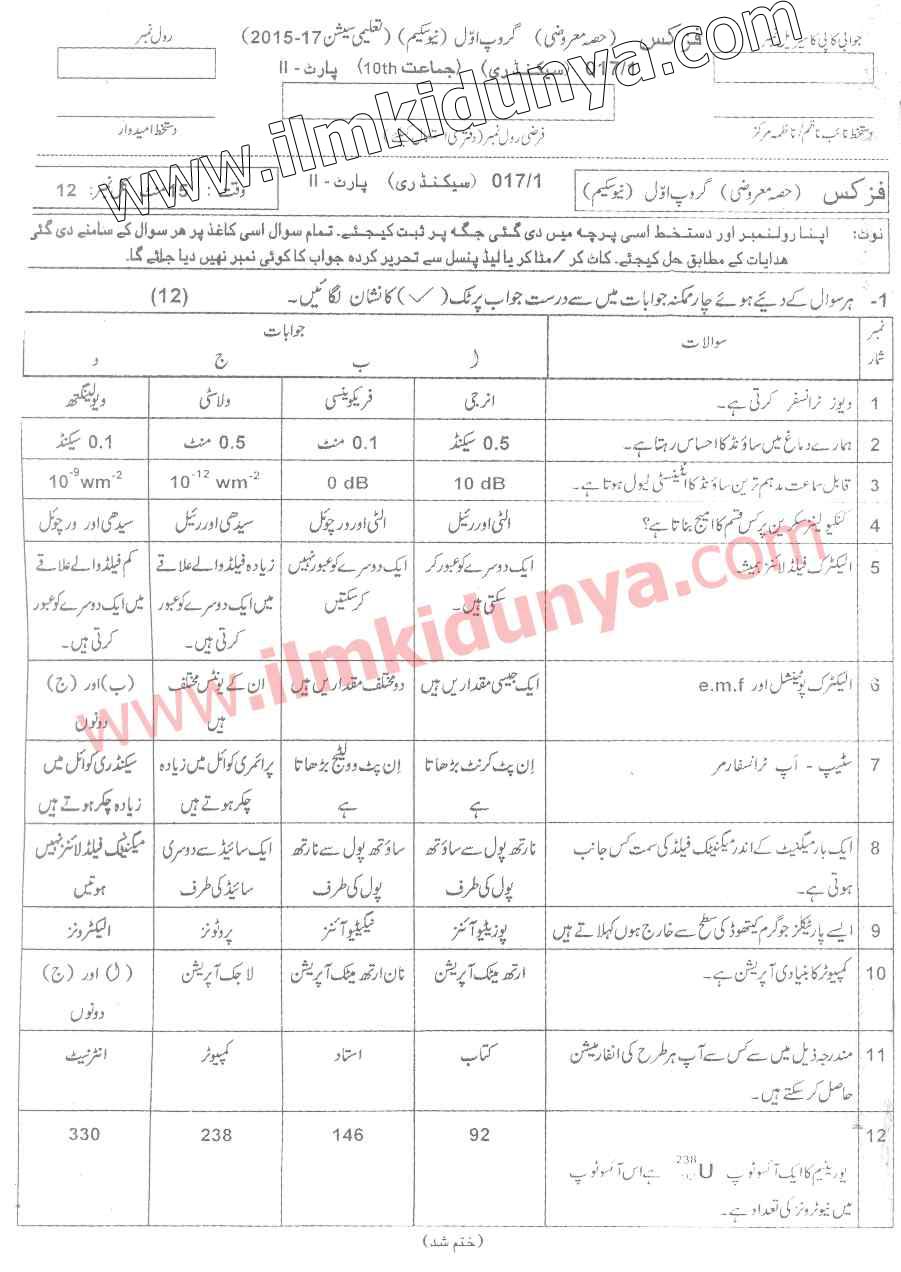 جوابی کاپی کا سیریل نمبر فزکس (حصہ معروضی) گروپ اوّل (نیو سکیم) (تعلیمی سیشن 17-2015) رول نمبر
017/1 (سیکنڈری) (جماعت 10th) پارٹ - II
دستخط نائب ناظم/ناظمہ مرکز فرضی رول نمبر (دفتری استعمال کیلئے) دستخط امیدوار
فزکس (حصہ معروضی) گروپ اوّل (نیو سکیم) 017/1 (سیکنڈری) پارٹ - II وقت : 15 منٹ کل نمبر: 12
نوٹ: اپنا رولنمبر اور دستخط اسی پرچہ میں دی گئی جگہ پر ثبت کیجئے۔ تمام سوال اسی کاغذ پر ہر سوال کے سامنے دی گئی
ہدایات کے مطابق حل کیجئے۔ کاٹ کر /مٹا کر یا لیڈ پنسل سے تحریر کردہ جواب کا کوئی نمبر نہیں دیا جائے گا۔
1- ہر سوال کے دیئے ہوئے چار ممکنہ جوابات میں سے درست جواب پر ٹک (✓) کا نشان لگائیں۔ (12)
نمبر شمار سوالات جوابات
ا ب ج د
1 ویوز ٹرانسفر کرتی ہے۔ انرجی فریکوئنسی ولاسٹی ویولینگتھ
2 ہمارے دماغ میں ساؤنڈ کا احساس رہتا ہے۔ 0.5 سیکنڈ 0.1 منٹ 0.5 منٹ 0.1 سیکنڈ
3 قابل سماعت مدہم ترین ساؤنڈ کا انٹینسٹی لیول ہوتا ہے۔ 10 dB 0 dB 10⁻¹² wm⁻² 10⁻⁹ wm⁻²
4 کنکیو لینز سکرین پر کس قسم کا امیج بناتا ہے؟ الٹی اور رئیل الٹی اور ورچوئل سیدھی اور رئیل سیدھی اور ورچوئل
5 الیکٹرک فیلڈ لائنز ہمیشہ ایک دوسرے کو عبور کر ایک دوسرے کو عبور نہیں زیادہ فیلڈ والے علاقے کم فیلڈ والے علاقے
سکتی ہیں۔ کر سکتیں میں ایک دوسرے کو عبور میں ایک دوسرے کو عبور
کرتی ہیں۔ کرتی ہیں۔
6 الیکٹرک پوٹینشل اور e.m.f ایک جیسی مقداریں ہیں دو مختلف مقداریں ہیں ان کے یونٹس مختلف (ب) اور (ج)
ہیں دونوں
7 سٹیپ - اَپ ٹرانسفارمر اِن پٹ کرنٹ بڑھاتا اِن پٹ وولٹیج بڑھاتا پرائمری کوائل میں زیادہ سیکنڈری کوائل میں
ہے ہے چکر ہوتے ہیں زیادہ چکر ہوتے ہیں
8 ایک بار میگنیٹ کے اندر میگنیٹک فیلڈ کی سمت کس جانب نارتھ پول سے ساؤتھ ساؤتھ پول سے نارتھ ایک سائیڈ سے دوسری میگنیٹک فیلڈ لائنز نہیں
ہوتی ہے۔ پول کی طرف پول کی طرف سائیڈ کی طرف ہوتیں
9 ایسے پارٹیکلز جو گرم کیتھوڈ کی سطح سے خارج ہوں کہلاتے ہیں پوزیٹیو آئنز نیگیٹیو آئنز پروٹونز الیکٹرونز
10 کمپیوٹر کا بنیادی آپریشن ہے۔ ارتھ میٹک آپریشن نان ارتھ میٹک آپریشن لاجک آپریشن (ا) اور (ج)
دونوں
11 مندرجہ ذیل میں سے کس سے آپ ہر طرح کی انفارمیشن کتاب استاد کمپیوٹر انٹرنیٹ
حاصل کر سکتے ہیں۔
12 92 146 238 330
یورینیم کا ایک آئسوٹوپ ²³⁸U ہے اس آئسوٹوپ
میں نیوٹرونز کی تعداد ہے۔
(ختم شد)
www.ilmkidunya.com
www.ilmkidunya.com